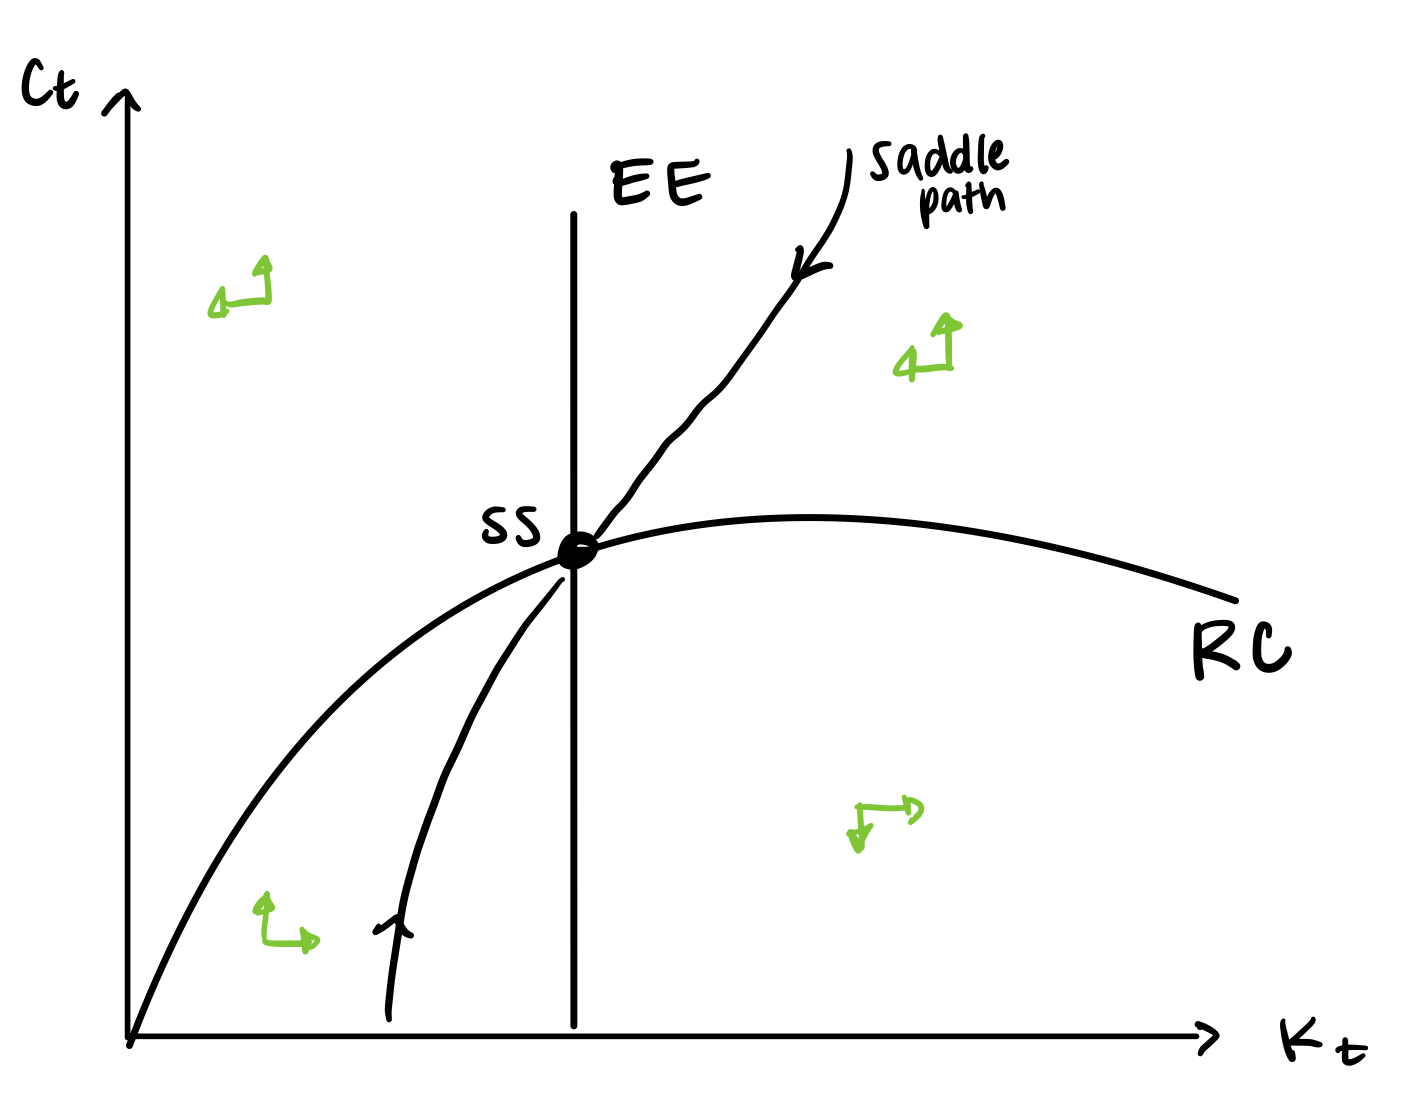 Ct
EE
saddle
path
SS
RC
Kt